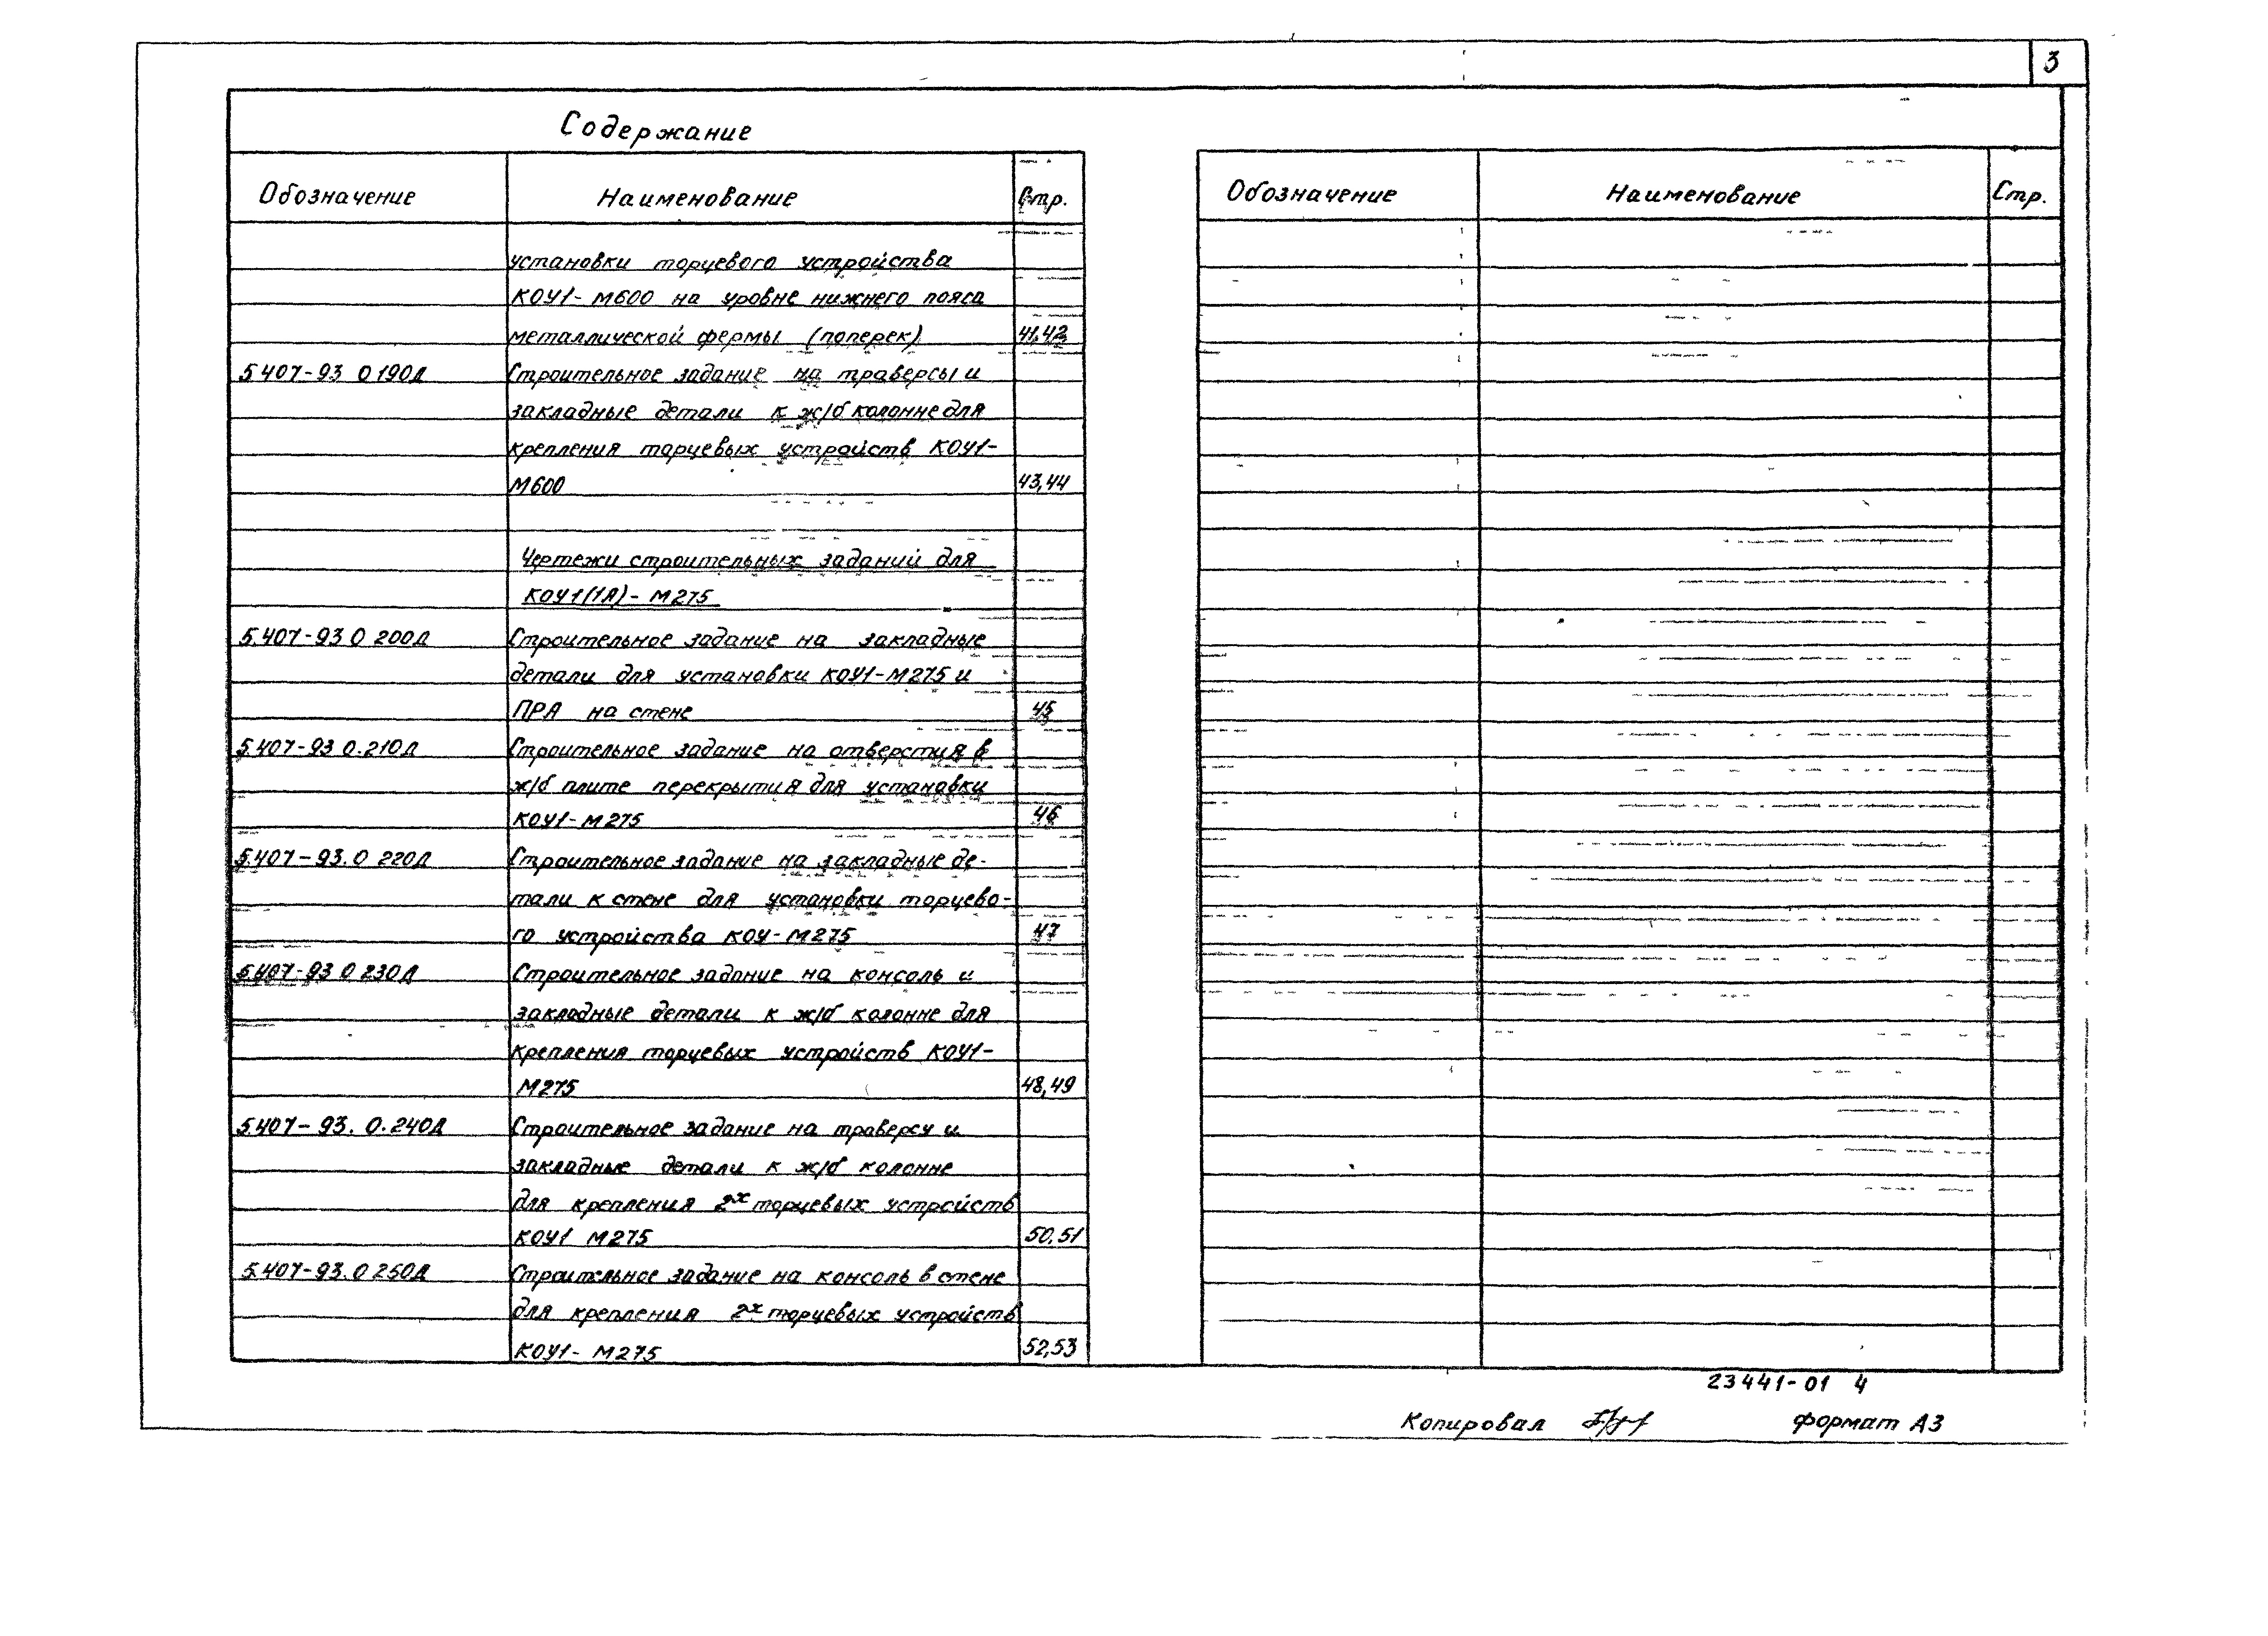 3
Содержание
Обозначение Наименование Стр.
установки торцевого устройства
КОУ1-М600 на уровне нижнего пояса
металлической фермы (поперек) 41,42
5407-93 0190Д Строительное задание на траверсы и
закладные детали к ж/б колонне для
крепления торцевых устройств КОУ1-
М600 43,44
Чертежи строительных заданий для
КОУ1(1А)-М275
5.407-93 0 200Д Строительное задание на закладные
детали для установки КОУ1-М275 и
ПРА на стене 45
5.407-93 0.210Д Строительное задание на отверстия в
ж/б плите перекрытия для установки
КОУ1-М275 46
5.407-93.0 220Д Строительное задание на закладные де-
тали к стене для установки торцево-
го устройства КОУ-М275 47
5.407-93 0 230Д Строительное задание на консоль и
закладные детали к ж/б колонне для
крепления торцевых устройств КОУ1-
М275 48,49
5407-93.0.240Д Строительное задание на траверсу и
закладные детали к ж/б колонне
для крепления 2х торцевых устройств
КОУ1 М275 50,51
5.407-93.0 250Д Строительное задание на консоль в стене
для крепления 2х торцевых устройств
КОУ1-М275 52,53
Обозначение Наименование Стр.
23441-01 4
Копировал формат А3